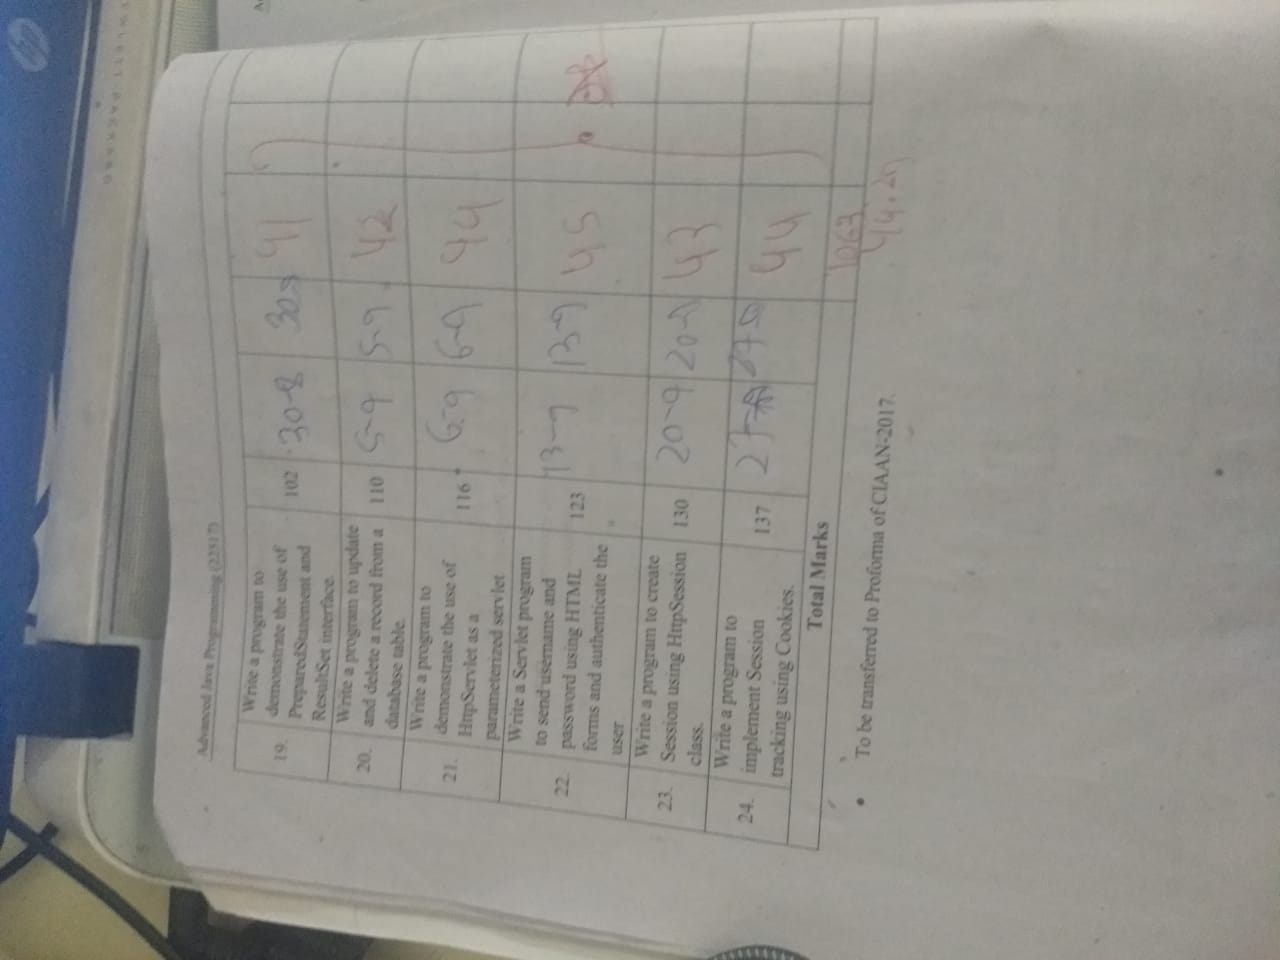 Advanced Java Programming (22517)
19. Write a program to
demonstrate the use of
PreparedStatement and
ResultSet interface.
102 30-8 30-8 41
20. Write a program to update
and delete a record from a
database table.
110 5-9 5-9 42
21. Write a program to
demonstrate the use of
HttpServlet as a
parameterized servlet
116 6-9 6-9 44
22. Write a Servlet program
to send username and
password using HTML
forms and authenticate the
user
123 13-9 13-9 45
23. Write a program to create
Session using HttpSession
class.
130 20-9 20-9 43
24. Write a program to
implement Session
tracking using Cookies.
137 27-9 44
Total Marks 1063
• To be transferred to Proforma of CIAAN-2017.
hp